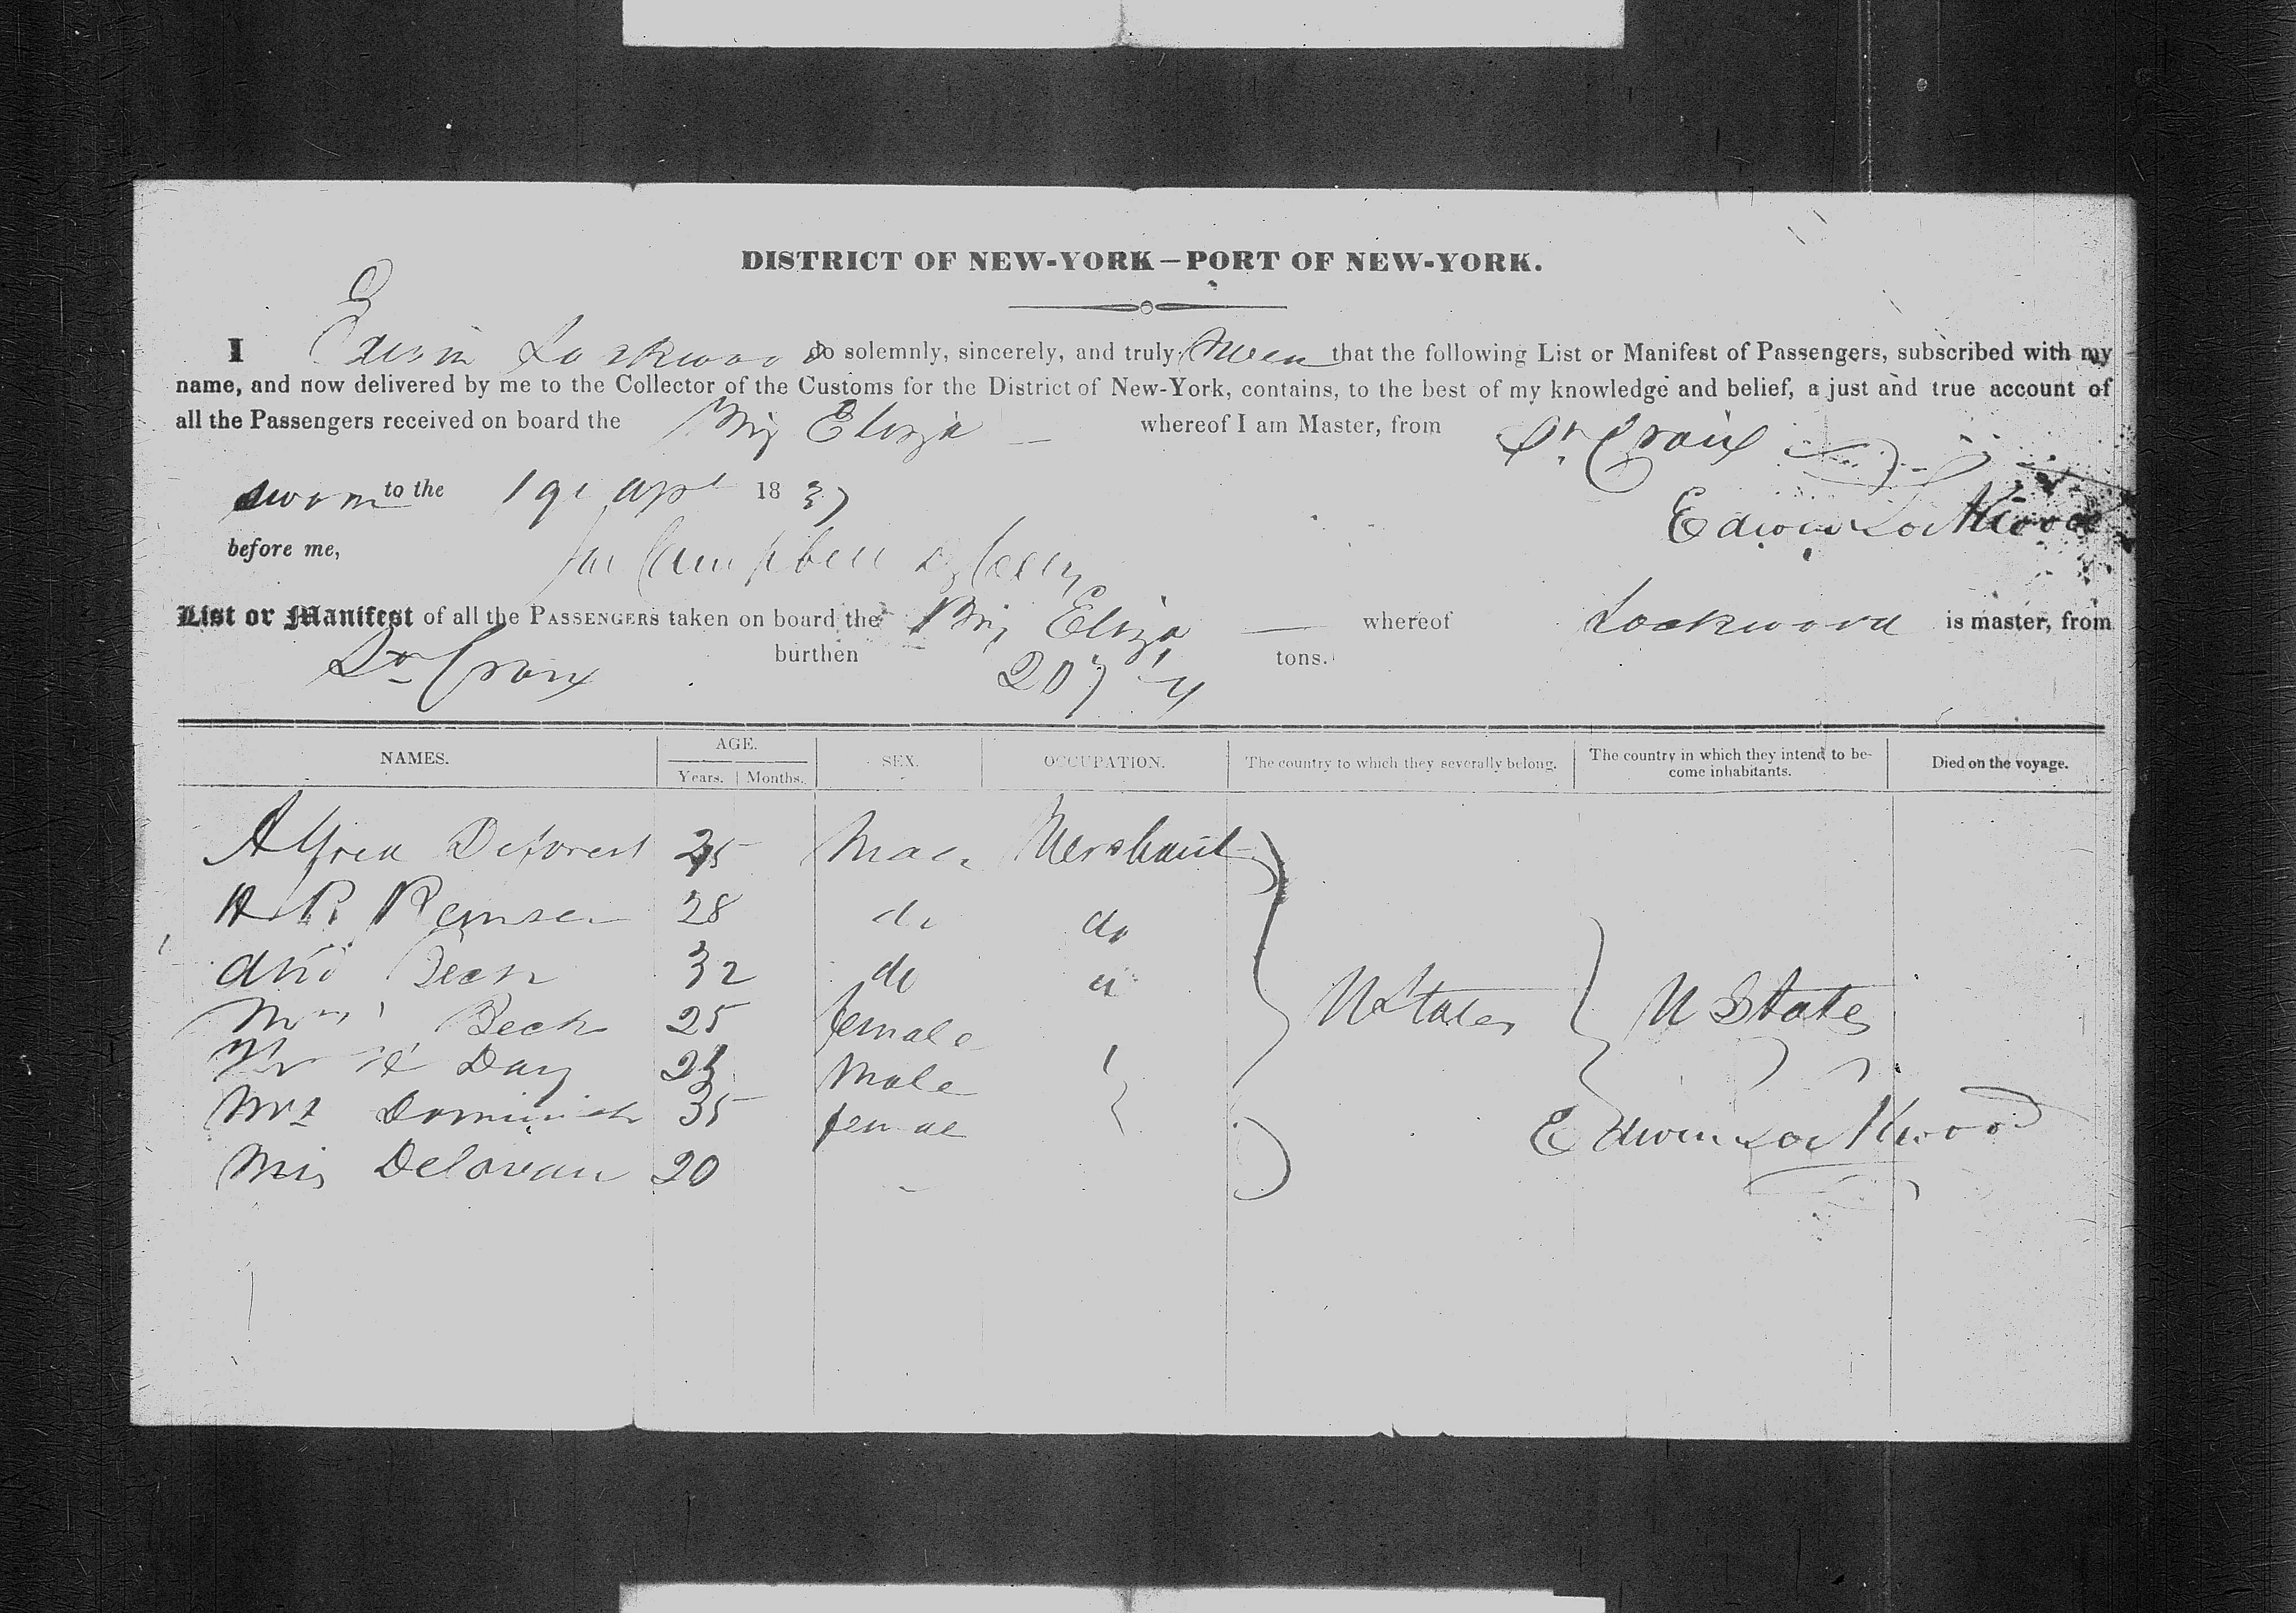 DISTRICT OF NEW-YORK—PORT OF NEW-YORK.
I Edwin Lockwood do solemnly, sincerely, and truly swear that the following List or Manifest of Passengers, subscribed with my
name, and now delivered by me to the Collector of the Customs for the District of New-York, contains, to the best of my knowledge and belief, a just and true account of
all the Passengers received on board the Brig Eliza — whereof I am Master, from St. Croix
sworn to the 19 Apl 1837
Edwin Lockwood
before me, Campbell
List or Manifest of all the PASSENGERS taken on board the Brig Eliza — whereof Lockwood is master, from
St Croix burthen 207 tons.
NAMES. AGE. Years. Months. SEX. OCCUPATION. The country to which they severally belong. The country in which they intend to become inhabitants. Died on the voyage.
Alfred Deforest 25 Male Merchant
H R Remsen 28 do do
Beck 32 do
Mrs Beck 25 female
Day Male
U States U States
Mrs Dominick 35 female
Edwin Lockwood
Miss Delavan 20